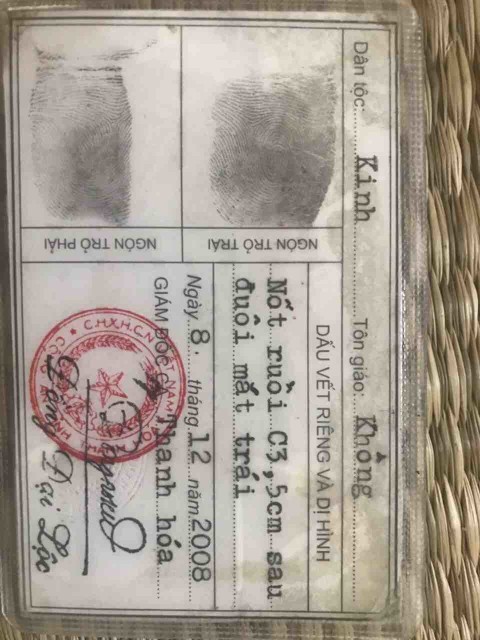 Dân tộc: Kinh Tôn giáo: Không
DẤU VẾT RIÊNG VÀ DỊ HÌNH
Nốt ruồi C3,5cm sau
đuôi mắt trái
NGÓN TRỎ TRÁI
NGÓN TRỎ PHẢI
Ngày 8. tháng 12 năm 2008
GIÁM ĐỐC CA Thanh hóa
C.H.X.H.C.N VIỆT NAM
Đồng Đại Lộc